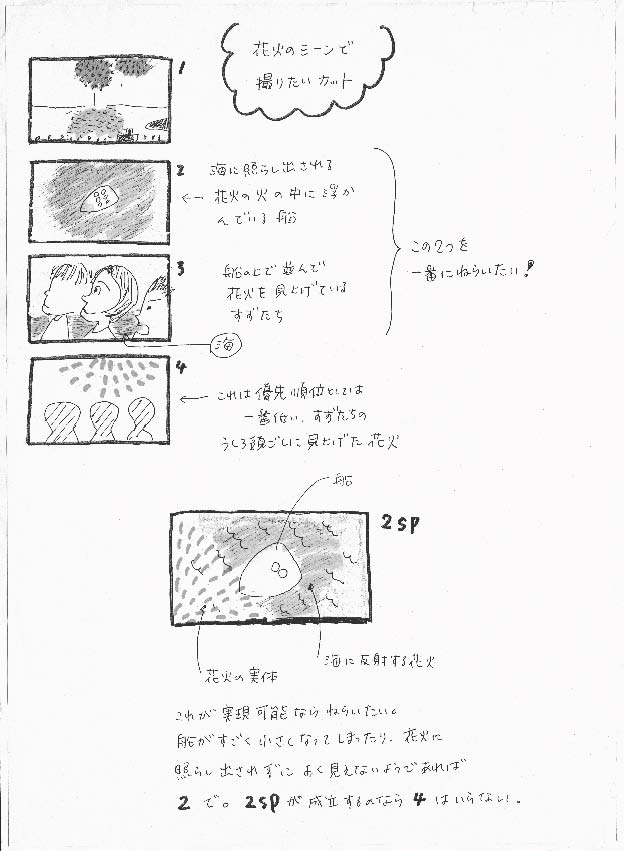 花火のシーンで
撮りたいカット
1
2 海に照らし出される
← 花火の火の中に浮か
んでいる船
3 船の上で並んで
花火を見上げている
すずたち
海
この2つを
一番にねらいたい!
4
← これは優先順位としては
一番低い、すずたちの
うしろ頭ごしに見上げた花火
船
2SP
花火の実体
海に反射する花火
これが実現可能ならねらいたい。
船がすごく小さくなってしまったり、花火に
照らし出されずによく見えないようであれば
2 で。2SPが成立するのなら 4 はいらない。